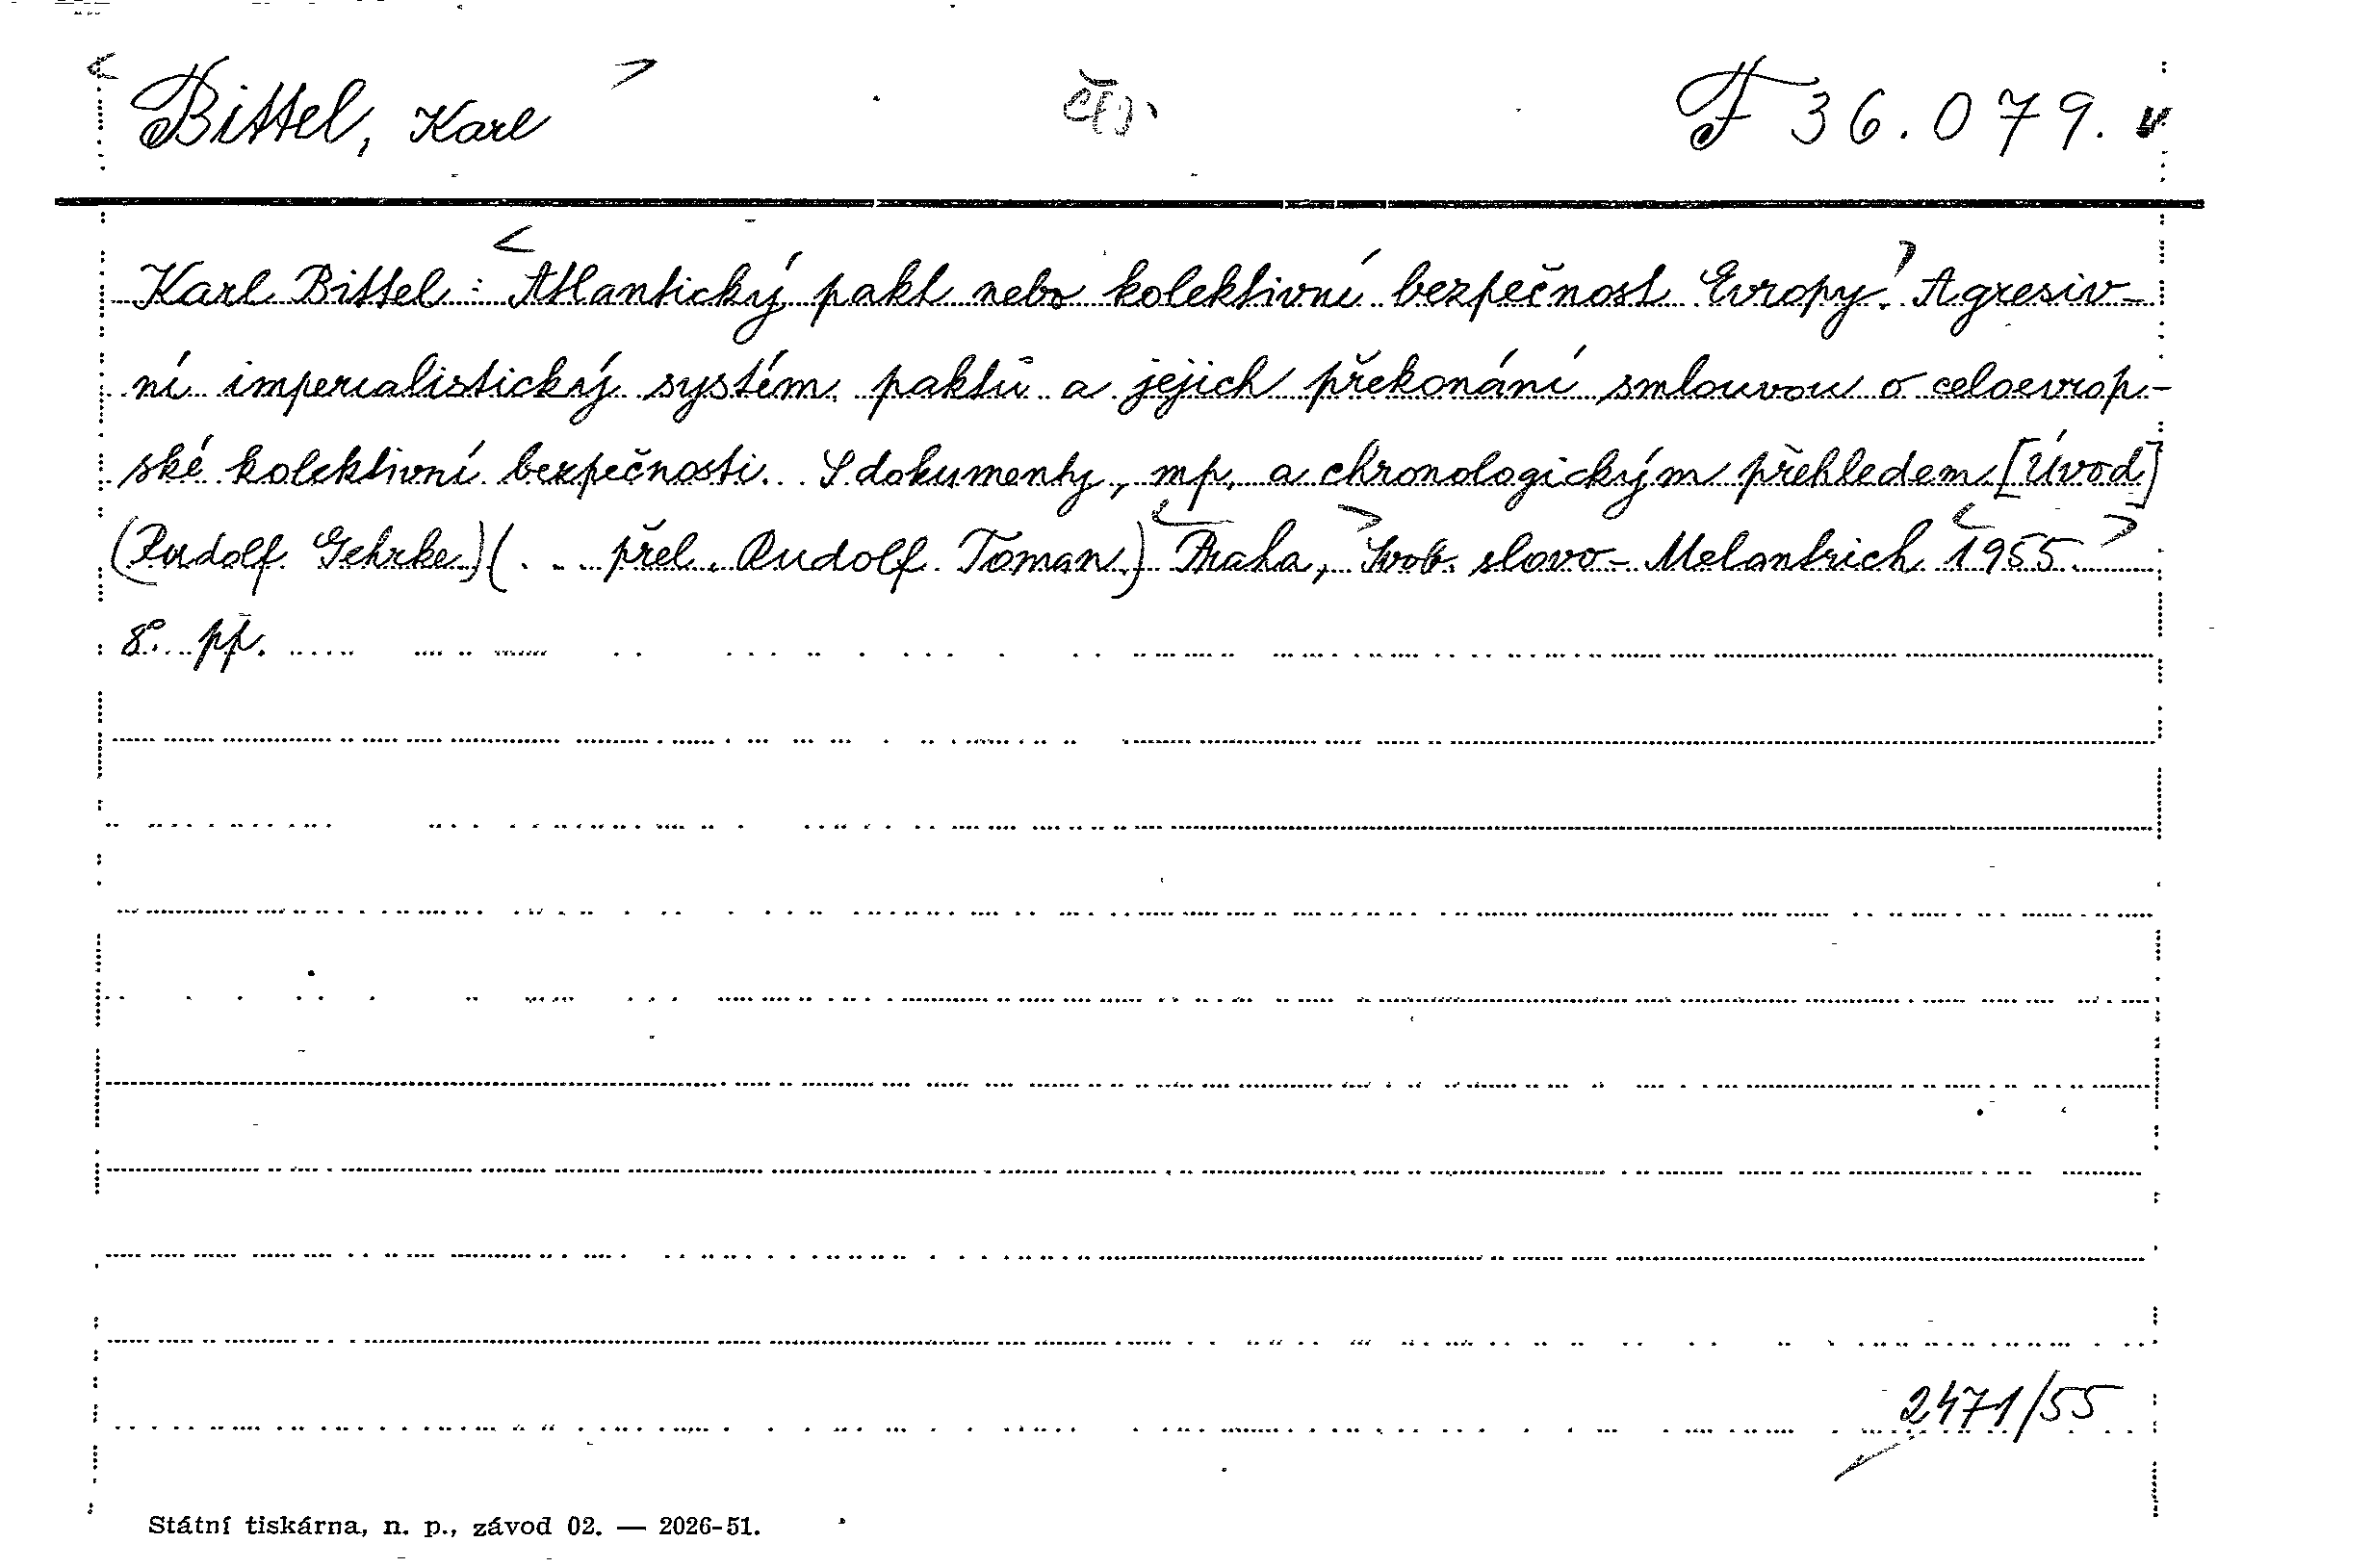 < Bittel, Karl > F 36.079. v
Karl Bittel : < Atlantický pakt nebo kolektivní bezpečnost Evropy? Agresiv-
ní imperialistický systém paktů a jejich překonání smlouvou o celoevrop-
ské kolektivní bezpečnosti. S dokumenty, mp. a chronologickým přehledem. [Úvod]
(Rudolf Gehrke) (... přel. Rudolf Toman.) < Praha, > Svob. slovo - Melantrich < 1955. >
8°. pp.
2471/55
Státní tiskárna, n. p., závod 02. — 2026-51.